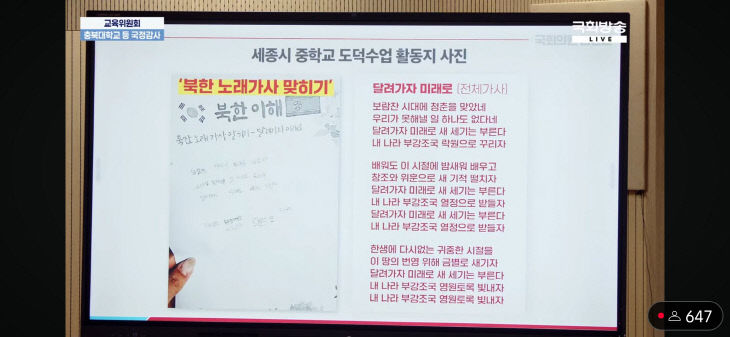 교육위원회
충북대학교 등 국정감사
국회방송
LIVE
세종시 중학교 도덕수업 활동지 사진
'북한 노래가사 맞히기'
북한 이해
달려가자 미래로 (전체가사)
보람찬 시대에 청춘을 맞았네
우리가 못해낼 일 하나도 없다네
달려가자 미래로 새 세기는 부른다
내 나라 부강조국 락원으로 꾸리자
배워도 이 시절에 밤새워 배우고
창조와 위훈으로 새 기적 떨치자
달려가자 미래로 새 세기는 부른다
내 나라 부강조국 열정으로 받들자
달려가자 미래로 새 세기는 부른다
내 나라 부강조국 열정으로 받들자
한생에 다시없는 귀중한 시절을
이 땅의 번영 위해 금별로 새기자
달려가자 미래로 새 세기는 부른다
내 나라 부강조국 영원토록 빛내자
내 나라 부강조국 영원토록 빛내자
647